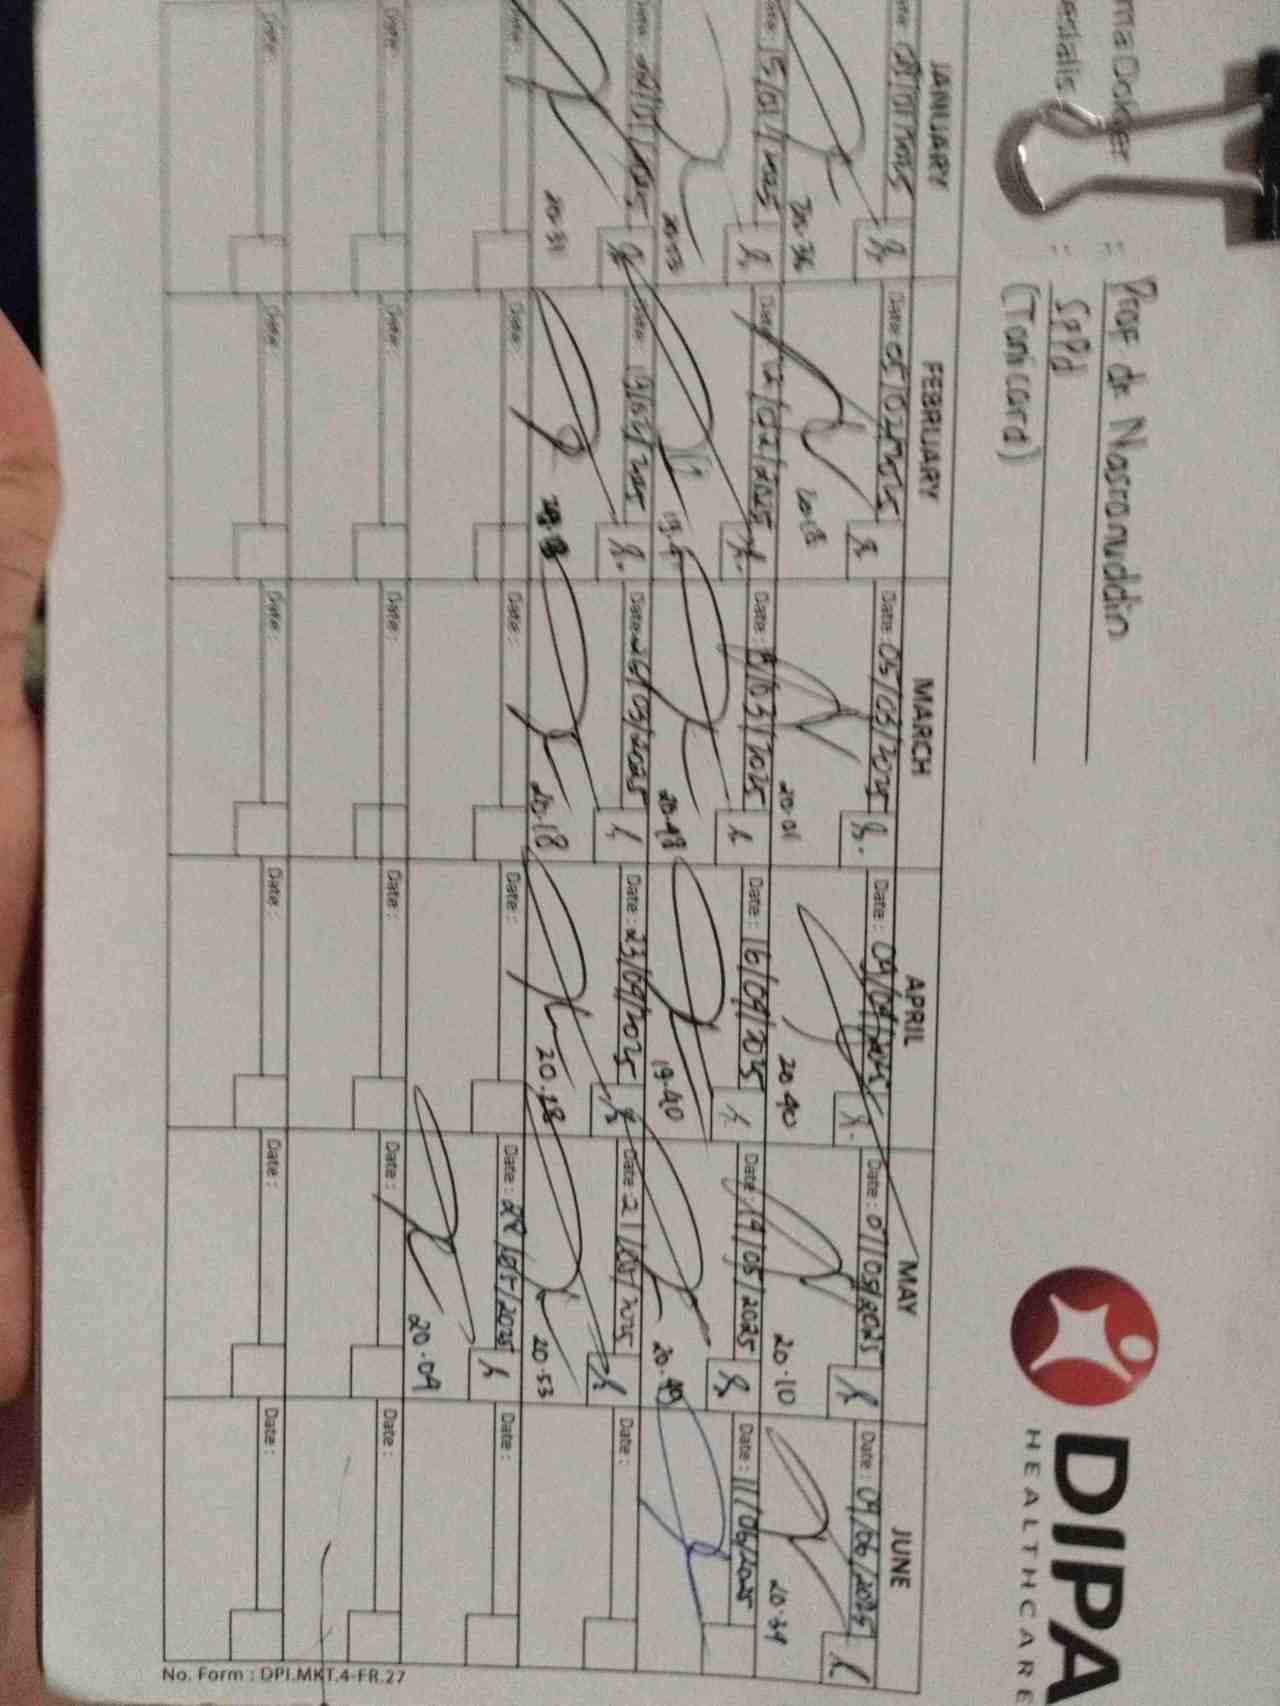 DIPA
HEALTHCARE
ma Dokter : Prof dr. Nasronuddin
esialis : SpPd
(Tonicard)
JANUARY FEBRUARY MARCH APRIL MAY JUNE
Date: 05/02/2025 Date: 05/03/2025 Date: 09/04/2025 Date: 07/05/2025 Date: 04/06/2025
20.36 20.18 20.01 20.40 20.10 20.34
15/01/2025 Date: 12/02/2025 Date: /03/2025 Date: 16/04/2025 Date: 14/05/2025 Date: 11/06/2025
20.53 20.48 19.40
Date: 19/02/2025 Date: 26/03/2025 Date: 23/04/2025 Date: 21/05/2025 Date:
20.31 20.18 20.18 20.53
Date: Date: Date: Date: Date: 28/05/2025 Date:
20.09
Date: Date: Date: Date: Date: Date:
Date: Date: Date: Date: Date: Date:
No. Form : DPI.MKT.4-FR.27